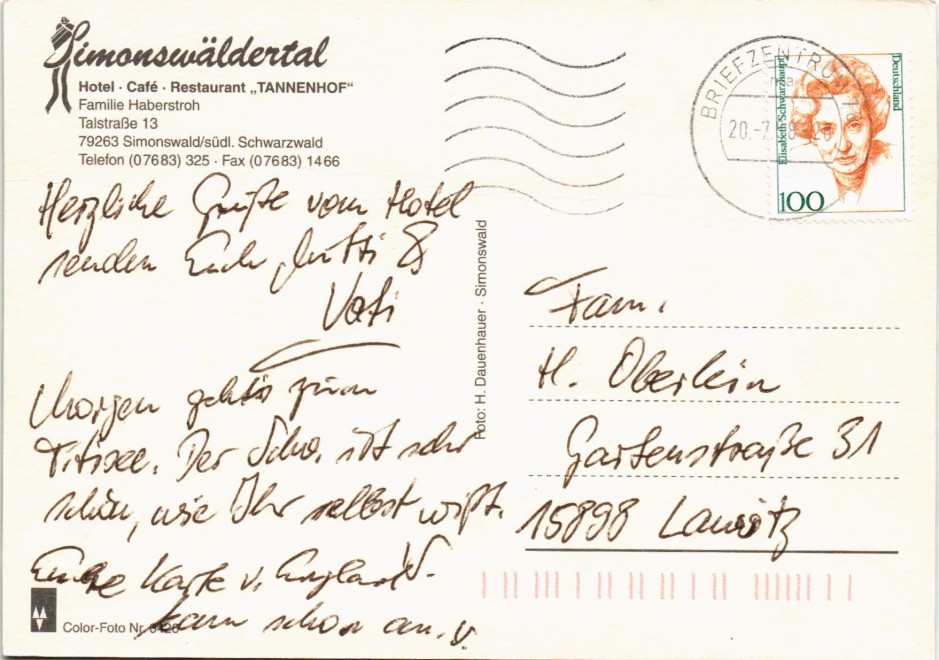 Simonswäldertal
Hotel · Café · Restaurant „TANNENHOF"
Familie Haberstroh
Talstraße 13
79263 Simonswald/südl. Schwarzwald
Telefon (07683) 325 · Fax (07683) 1466
Herzliche Grüße vom Hotel
senden Euch, Mutti &
Vati
Morgen geht's zum
Titisee. Der Schw. ist sehr
schön, wie Ihr selbst wißt.
Eure Karte v. England
kam schon an.
Color-Foto Nr. 6420
Foto: H. Dauenhauer · Simonswald
BRIEFZENTRUM
20.-7.
Elisabeth Schwarzhaupt
Deutschland
100
Fam.
H. Oberlein
Gartenstraße 31
15898 Lawitz